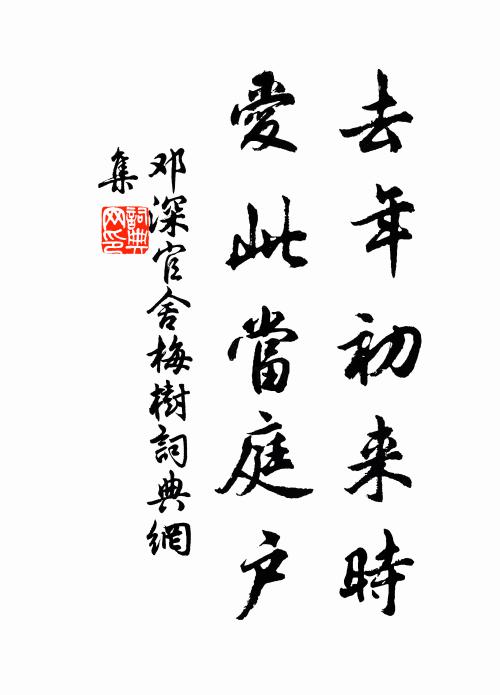 去年初来時
愛此當庭户
邓深官舍梅樹詞典網
集
詞典网印